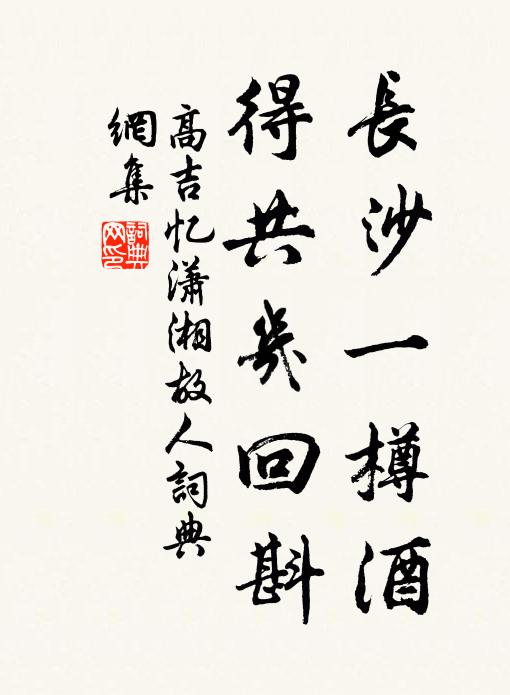 長沙一樽酒
得共幾回斟
高吉忆潇湘故人詞典
網集
詞典
网印